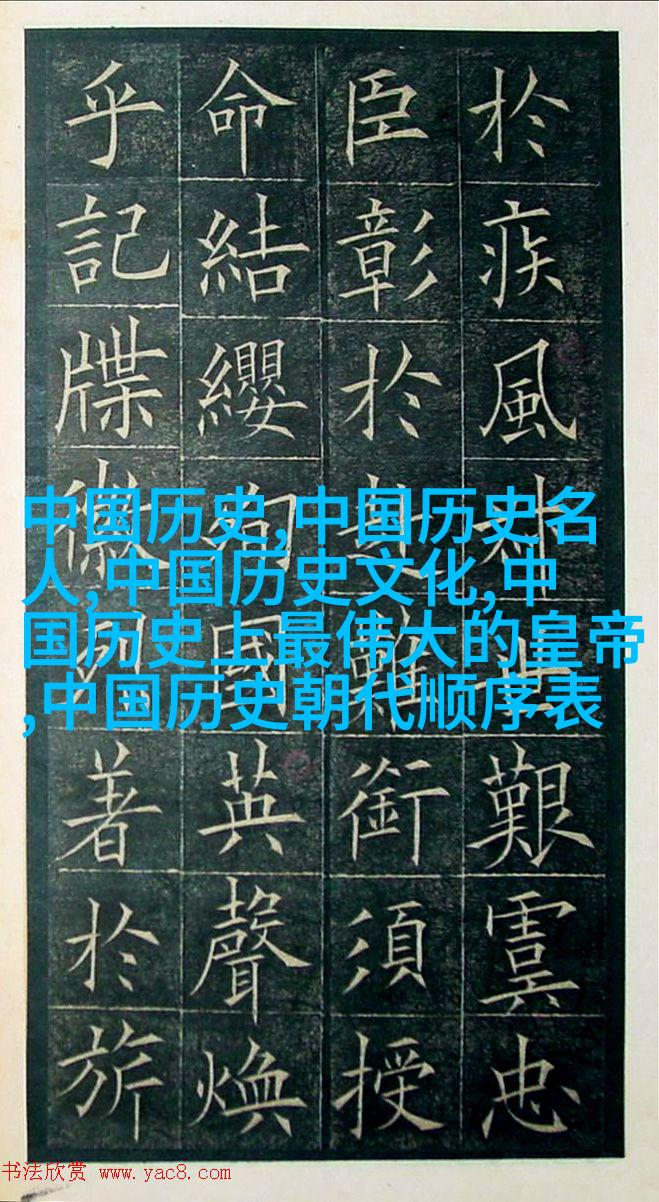 於疾風世艱虞忠
臣彰於赴難銜須授
命結纓國英聲煥
乎記牒徽烈著於旂
中国历史,中国历史名
人,中国历史文化,中
国历史上最伟大的皇帝
,中国历史朝代顺序表
书法欣赏 www.yac8.com